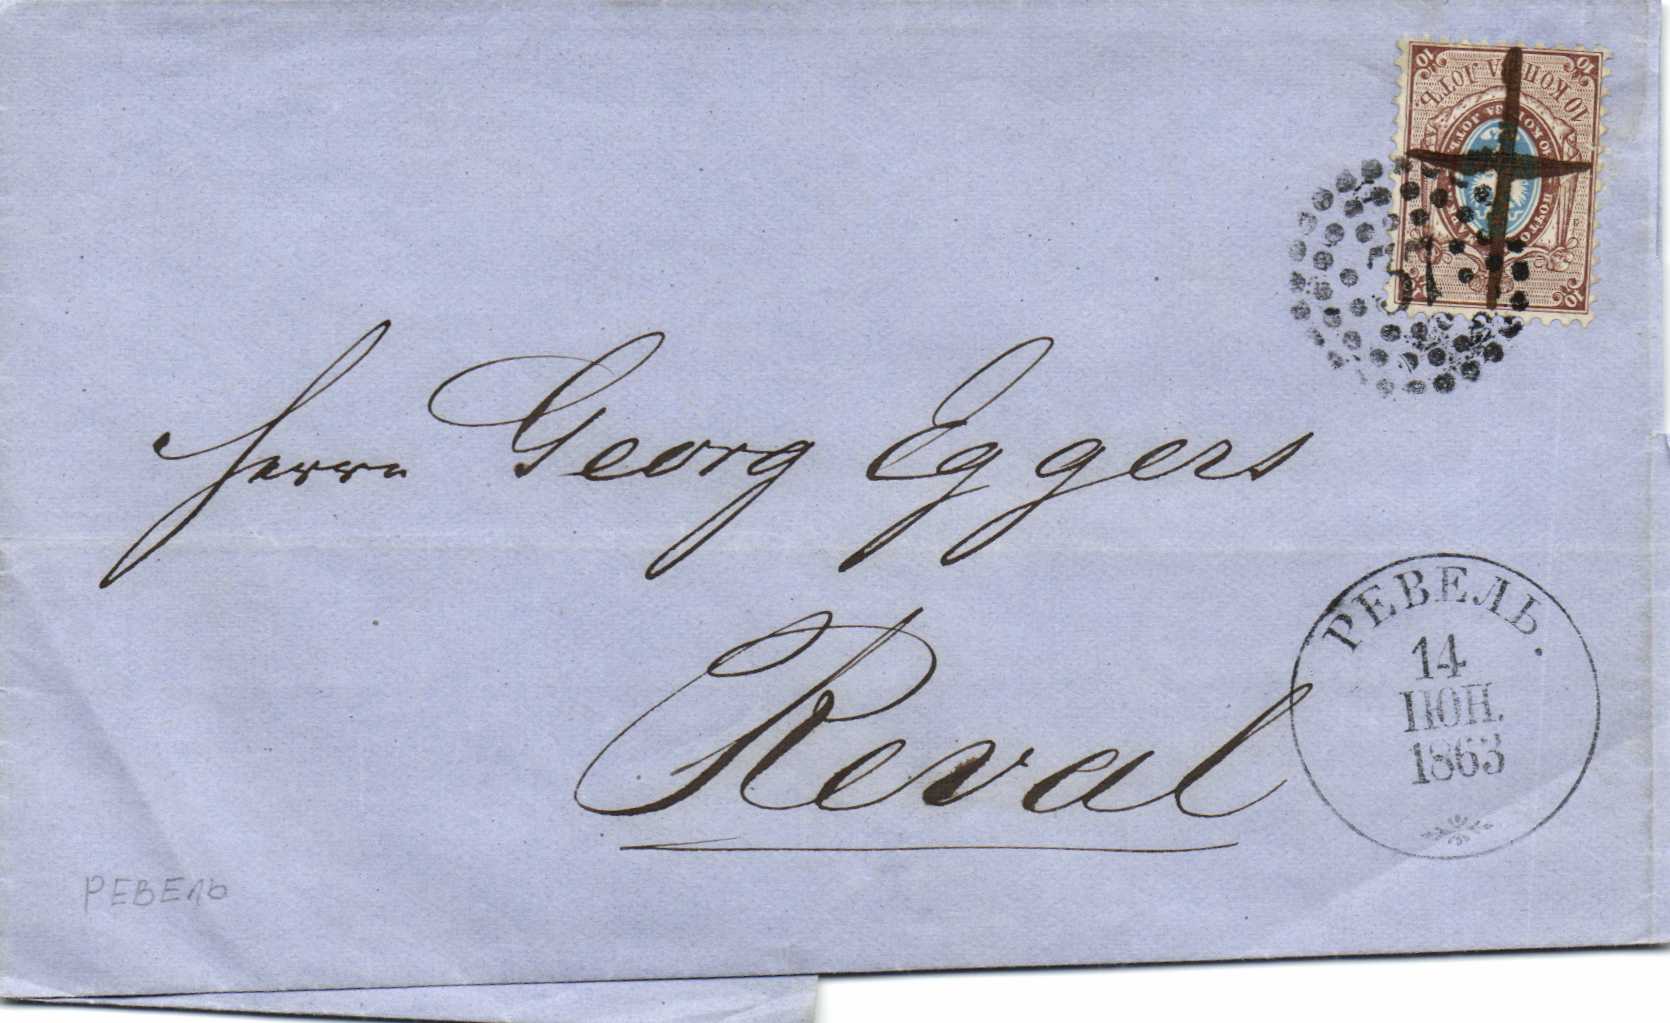 10 КОП. ЗА ЛОТЪ.
10
10
10
51
Herrn Georg Eggers
Reval
РЕВЕЛЬ.
14
ІЮН.
1863
РЕВЕЛЬ